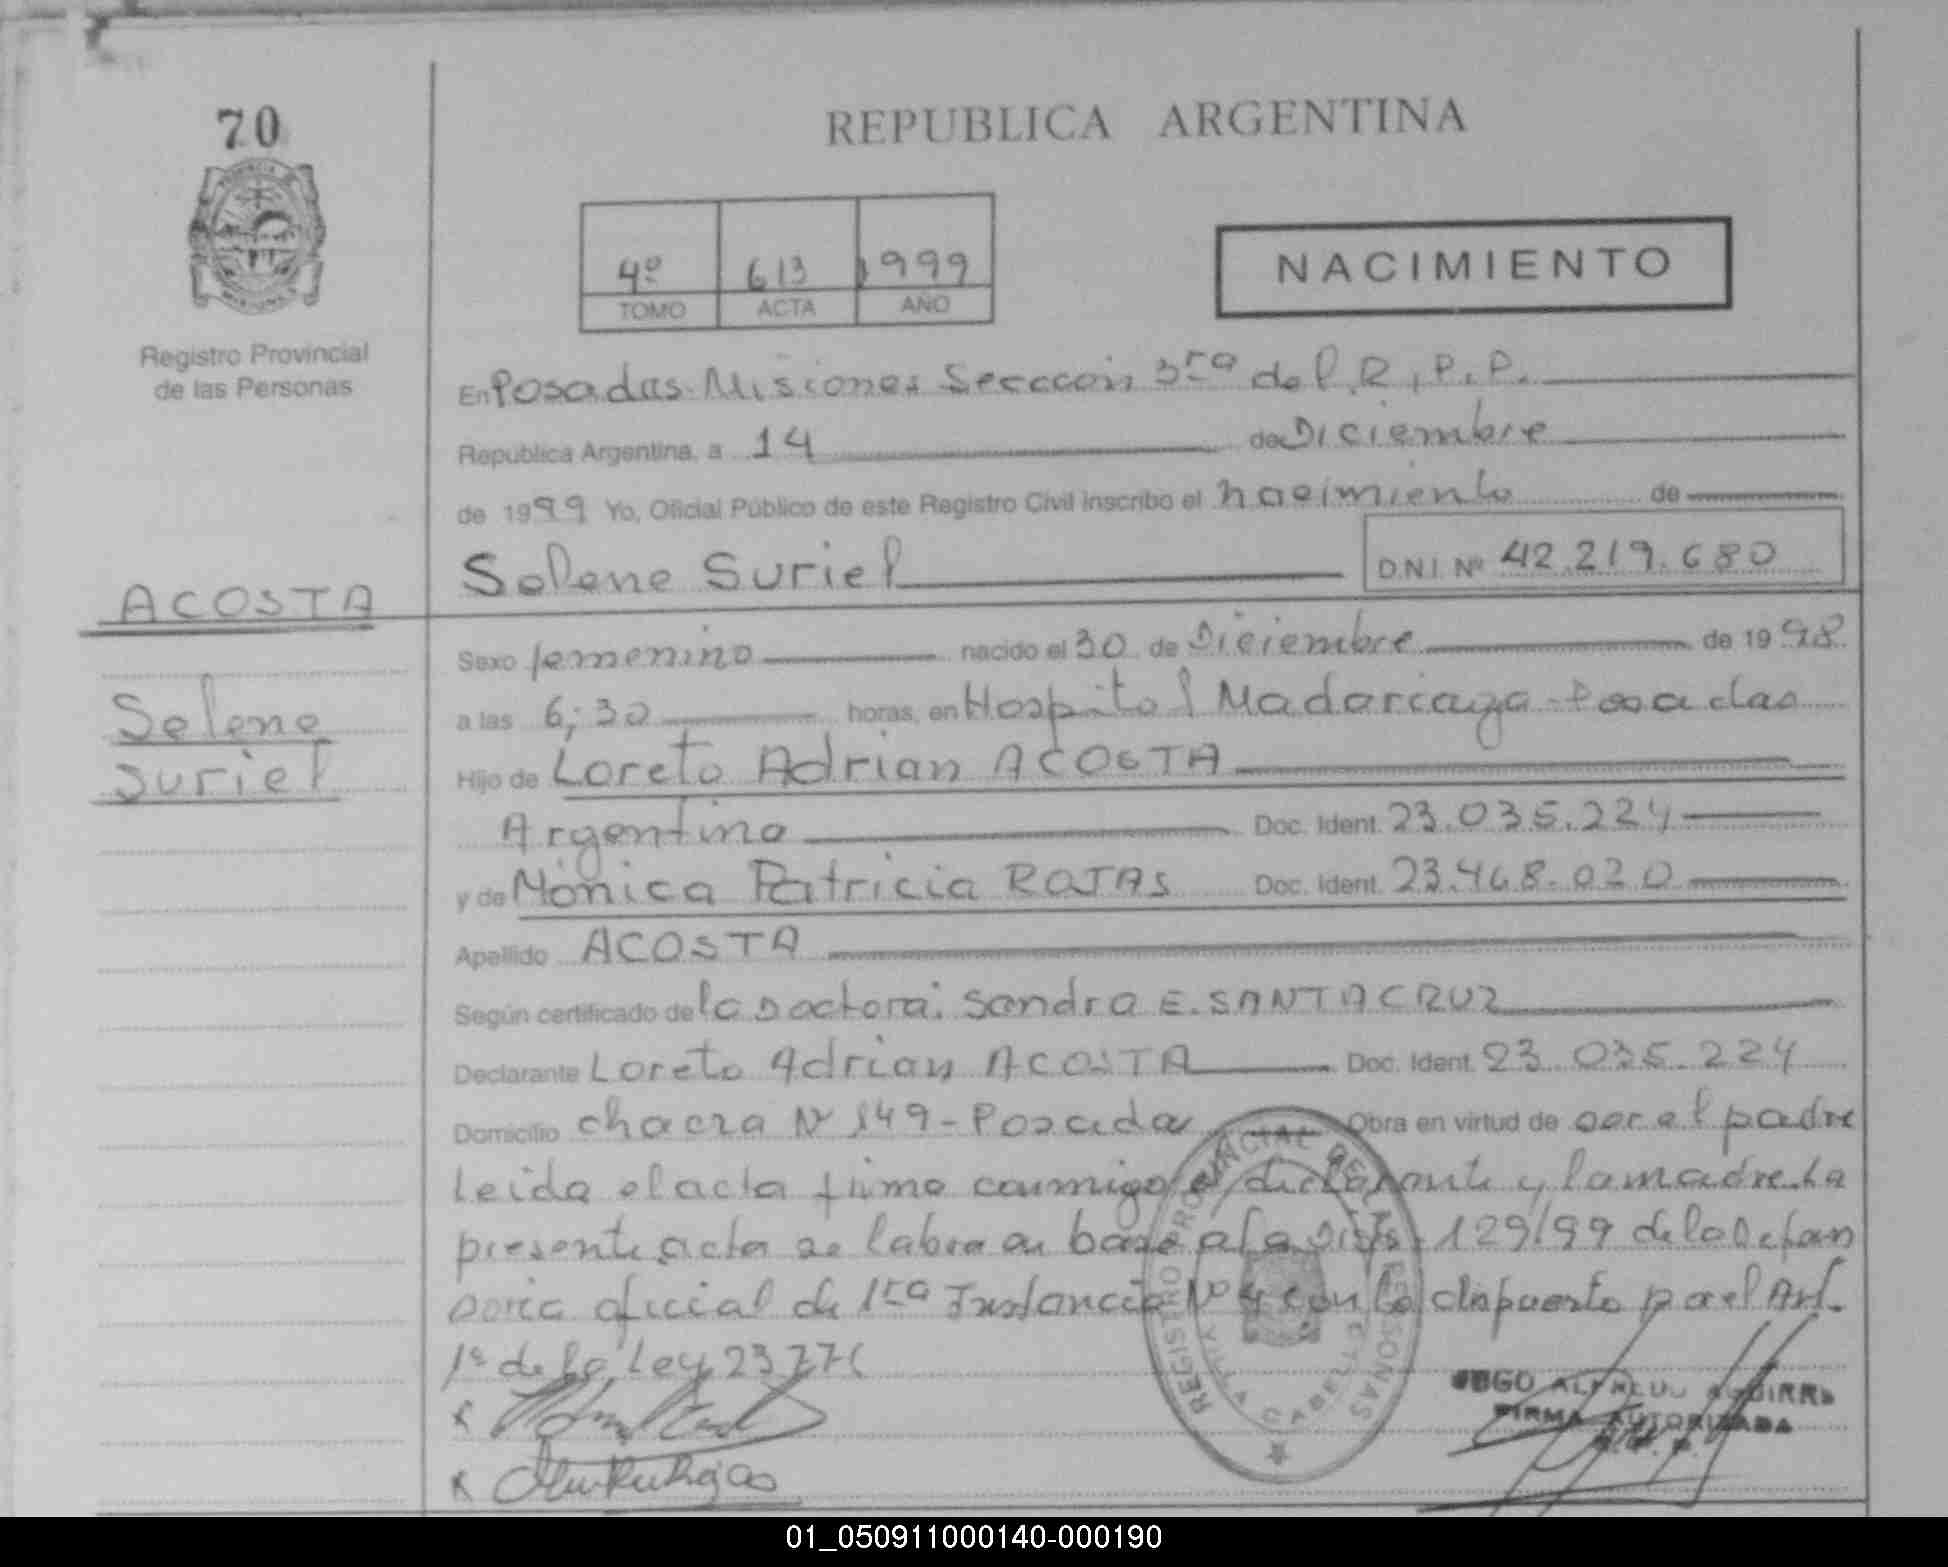 70
REPUBLICA ARGENTINA
4º 613 1999
TOMO ACTA AÑO
NACIMIENTO
Registro Provincial
de las Personas
En Posadas Misiones Seccion 3ra del R.P.P.
República Argentina, a 14 de Diciembre
de 1999 Yo, Oficial Público de este Registro Civil inscribo el nacimiento de
Selene Suriel D.N.I. Nº 42.219.680
ACOSTA
Selene
Suriel
Sexo femenino nacido el 30 de Diciembre de 1998
a las 6;30 horas, en Hospital Madariaga - Posadas
Hijo de Loreto Adrian ACOSTA
Argentino Doc. Ident. 23.035.224
y de Mónica Patricia ROJAS Doc. Ident. 23.468.020
Apellido ACOSTA
Según certificado de la Doctora: Sandra E. SANTACRUZ
Declarante Loreto Adrian ACOSTA Doc. Ident. 23.035.224
Domicilio chacra Nº 149 - Posadas Obra en virtud de ser el padre
Leida el acta firma conmigo el declarante y la madre. La
presente acta se labra en base a la 129/99 de la Defen
soria oficial de 1ra Instancia Nº 4 con lo dispuesto por el Art.
1º de la Ley 23776
REGISTRO PROVINCIAL DE LAS PERSONAS
VILLA CABELLO
AGUIRRE
FIRMA AUTORIZADA
01_050911000140-000190